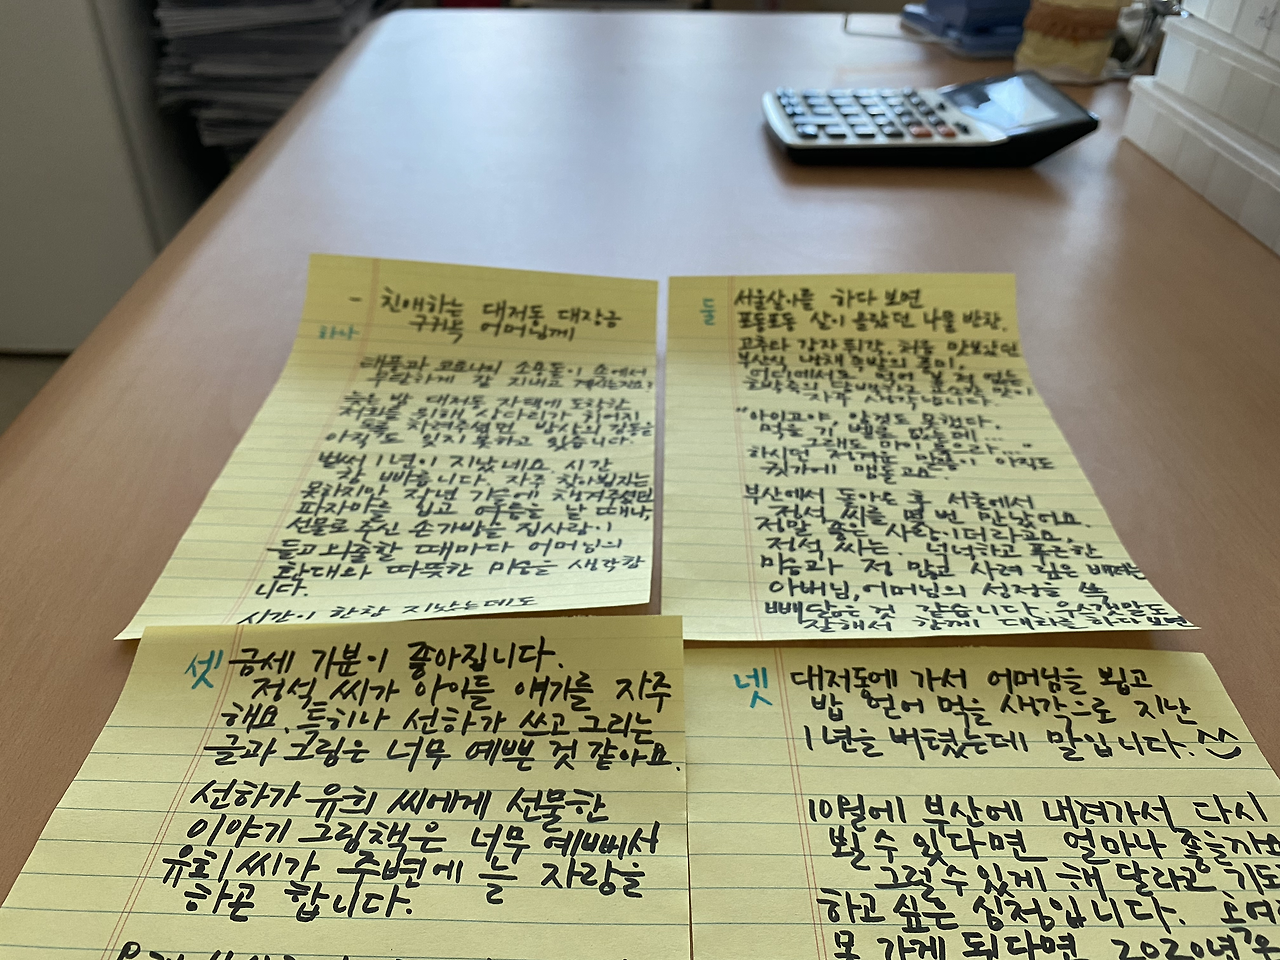 하나
- 친애하는 대저동 대장금
구귀득 어머님께
태풍과 코로나의 소용돌이 속에서
무탈하게 잘 지내고 계시는지요?
늦은 밤 대저동 자택에 도착한
저희를 위해 상다리가 휘어지
도록 차려주셨던 밥상의 감동을
아직도 잊지 못하고 있습니다.
벌써 1년이 지났네요. 시간
참 빠릅니다. 자주 찾아뵙지는
못하지만 작년 가을에 챙겨주셨던
파자마를 입고 여름을 날 때나,
선물로 주신 손가방을 집사람이
들고 외출할 때마다 어머님의
환대와 따뜻한 마음을 생각합
니다.
시간이 한참 지났는데도
둘
서울살이를 하다 보면
포동포동 살이 올랐던 나물 반찬,
고추다 감자 튀각, 처음 맛보았던
부산식 냉채 족발의 풍미,
어디에서도 먹어 볼 수 없는
호박죽의 담백하고 고소한 맛이
자주 생각납니다.
"아이고야, 암것도 못했다.
먹을 기 벨로 없는데...
그래도 마이 무으라..."
하시던 정겨운 말씀이 아직도
귓가에 맴돌고요.
부산에서 돌아온 후 서울에서
정석 씨를 몇 번 만났어요.
정말 좋은 사람이더라고요.
정석 씨는 넉넉하고 푸근한
마음과 정 많고 사려 깊은 배려는
아버님, 어머님의 성정을 쏙
빼닮은 것 같습니다. 우스갯말도
잘해서 함께 대화를 하다 보면
셋
금세 기분이 좋아집니다.
정석 씨가 아이들 얘기를 자주
해요. 특히나 선하가 쓰고 그리는
글과 그림은 너무 예쁜 것 같아요.
선하가 유희 씨에게 선물한
이야기 그림책은 너무 예뻐서
유희 씨가 주변에 늘 자랑을
하곤 합니다.
넷
대저동에 가서 어머님을 뵙고
밥 얻어 먹을 생각으로 지난
1년을 버텼는데 말입니다. ^^
10월에 부산에 내려가서 다시
뵐 수 있다면 얼마나 좋을까요
그럴 수 있게 해 달라고 기도
하고 싶은 심정입니다.
못 가게 된다면 2020년